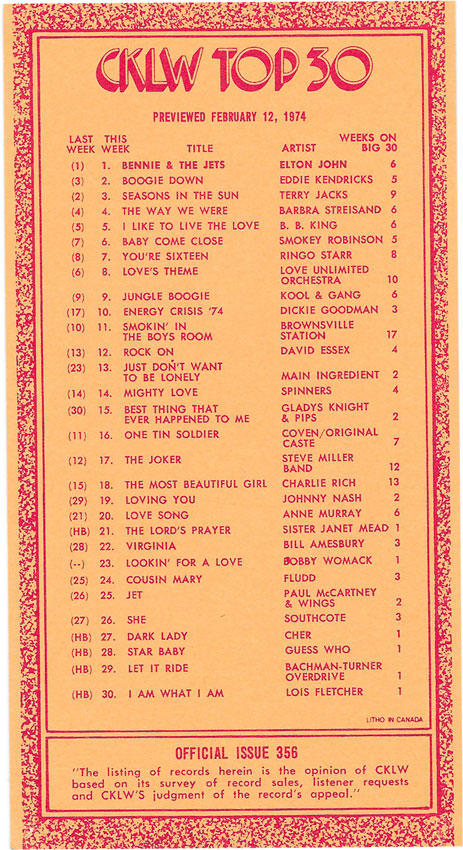 CKLW TOP 30
PREVIEWED FEBRUARY 12, 1974
LAST THIS WEEKS ON
WEEK WEEK TITLE ARTIST BIG 30
(1) 1. BENNIE & THE JETS ELTON JOHN 6
(3) 2. BOOGIE DOWN EDDIE KENDRICKS 5
(2) 3. SEASONS IN THE SUN TERRY JACKS 9
(4) 4. THE WAY WE WERE BARBRA STREISAND 6
(5) 5. I LIKE TO LIVE THE LOVE B. B. KING 6
(7) 6. BABY COME CLOSE SMOKEY ROBINSON 5
(8) 7. YOU'RE SIXTEEN RINGO STARR 8
(6) 8. LOVE'S THEME LOVE UNLIMITED
ORCHESTRA 10
(9) 9. JUNGLE BOOGIE KOOL & GANG 6
(17) 10. ENERGY CRISIS '74 DICKIE GOODMAN 3
(10) 11. SMOKIN' IN BROWNSVILLE
THE BOYS ROOM STATION 17
(13) 12. ROCK ON DAVID ESSEX 4
(23) 13. JUST DON'T WANT
TO BE LONELY MAIN INGREDIENT 2
(14) 14. MIGHTY LOVE SPINNERS 4
(30) 15. BEST THING THAT GLADYS KNIGHT
EVER HAPPENED TO ME & PIPS 2
(11) 16. ONE TIN SOLDIER COVEN/ORIGINAL
CASTE 7
(12) 17. THE JOKER STEVE MILLER
BAND 12
(15) 18. THE MOST BEAUTIFUL GIRL CHARLIE RICH 13
(29) 19. LOVING YOU JOHNNY NASH 2
(21) 20. LOVE SONG ANNE MURRAY 6
(HB) 21. THE LORD'S PRAYER SISTER JANET MEAD 1
(28) 22. VIRGINIA BILL AMESBURY 3
(--) 23. LOOKIN' FOR A LOVE BOBBY WOMACK 1
(25) 24. COUSIN MARY FLUDD 3
(26) 25. JET PAUL McCARTNEY
& WINGS 2
(27) 26. SHE SOUTHCOTE 3
(HB) 27. DARK LADY CHER 1
(HB) 28. STAR BABY GUESS WHO 1
(HB) 29. LET IT RIDE BACHMAN-TURNER
OVERDRIVE 1
(HB) 30. I AM WHAT I AM LOIS FLETCHER 1
LITHO IN CANADA
OFFICIAL ISSUE 356
"The listing of records herein is the opinion of CKLW
based on its survey of record sales, listener requests
and CKLW'S judgment of the record's appeal."